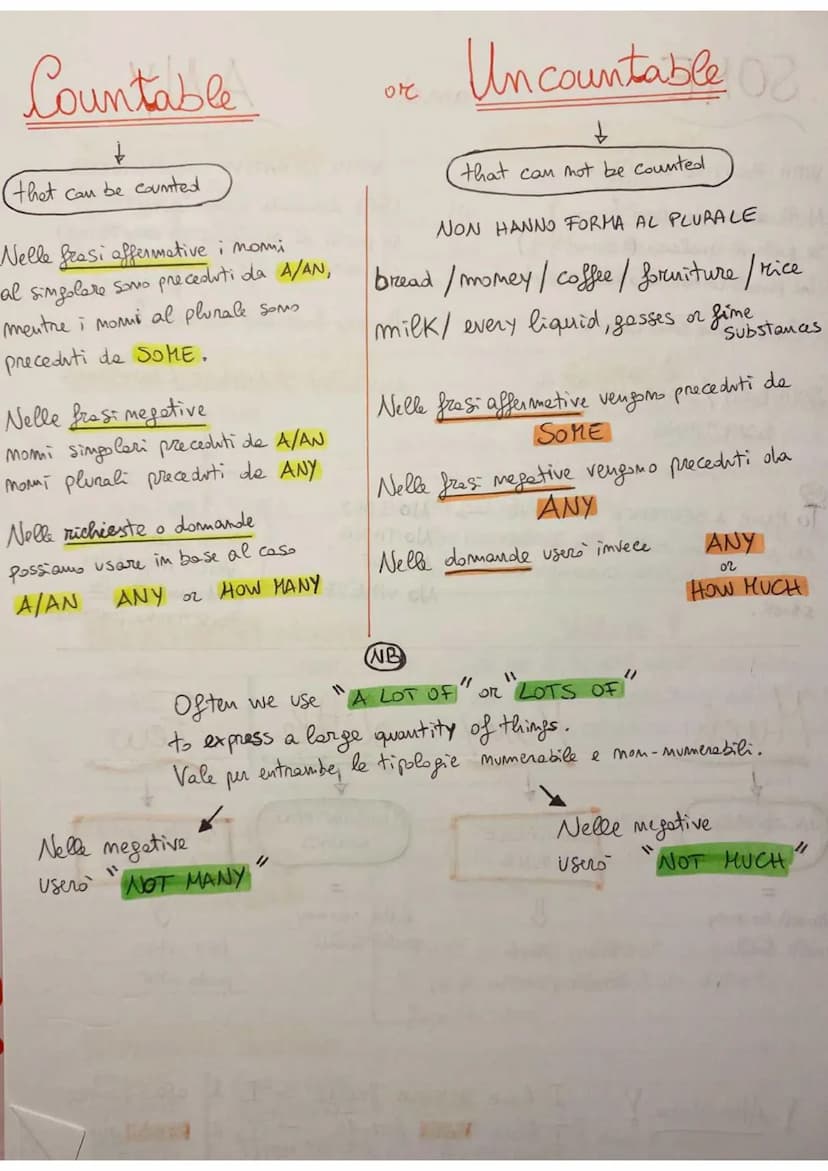 Countable or Uncountable
that can be counted
Nelle frasi affermative i nomi
al singolare sono preceduti da A/AN,
mentre i nomi al plurale sono
preceduti da SOME.
Nelle frasi negative
nomi singolari preceduti da A/AN
nomi plurali preceduti da ANY
Nelle richieste o domande
possiamo usare in base al caso
A/AN ANY or HOW MANY
that can not be counted
NON HANNO FORMA AL PLURALE
bread / money / coffee / forniture / rice
milk / every liquid, gasses or fine
substances
Nelle frasi affermative vengono preceduti da
SOME
Nelle frasi negative vengono preceduti da
ANY
Nelle domande userò invece ANY
or
HOW MUCH
NB
Often we use "A LOT OF" or "LOTS OF"
to express a large quantity of things.
Vale per entrambe, le tipologie numerabile e non-numerabili.
Nelle negative
userò "NOT MANY"
Nelle negative
userò "NOT MUCH"